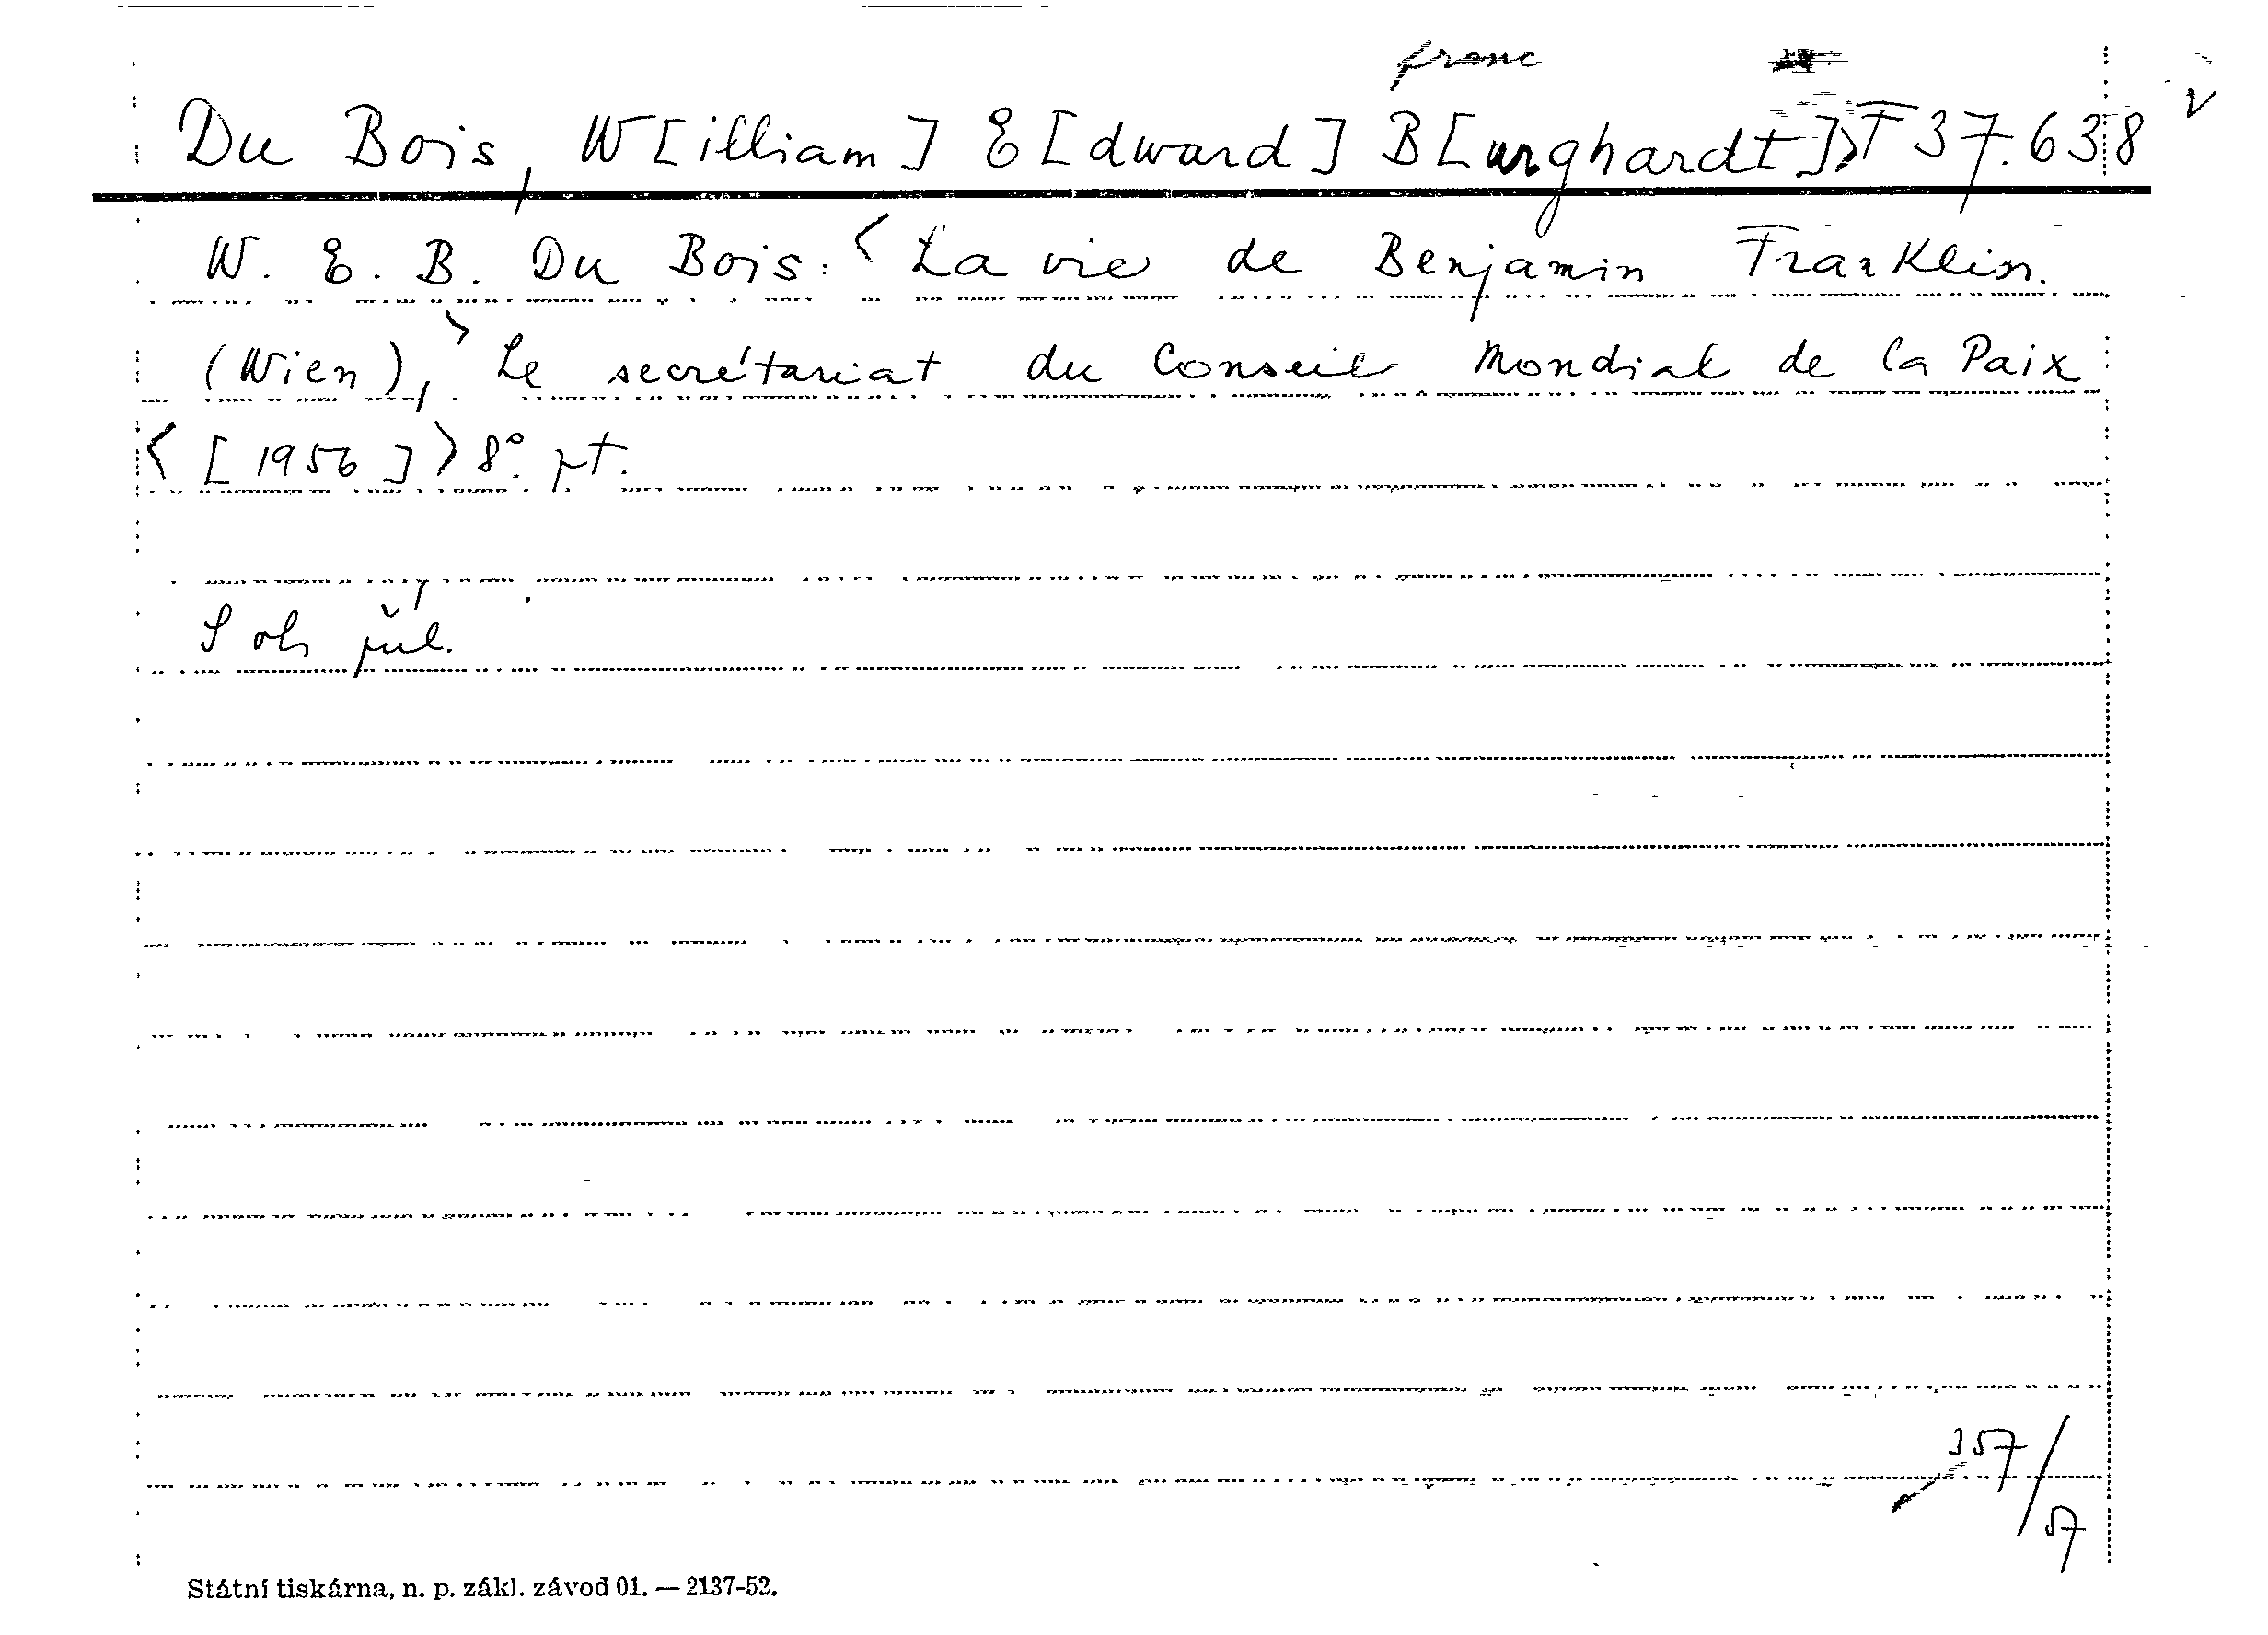 franc
Du Bois, W[illiam] E[dward] B[urghardt]> T 37.638
W. E. B. Du Bois: <La vie de Benjamin Franklin.
(Wien),> Le secrétariat du Conseil Mondial de la Paix
<[1956]> 8°. pt.
S ob příl.
357/57
Státní tiskárna, n. p. zákl. závod 01. — 2137-52.